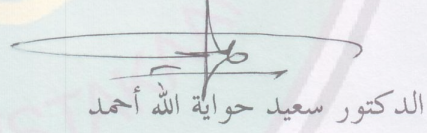 الدكتور سعيد حواية الله أحمد